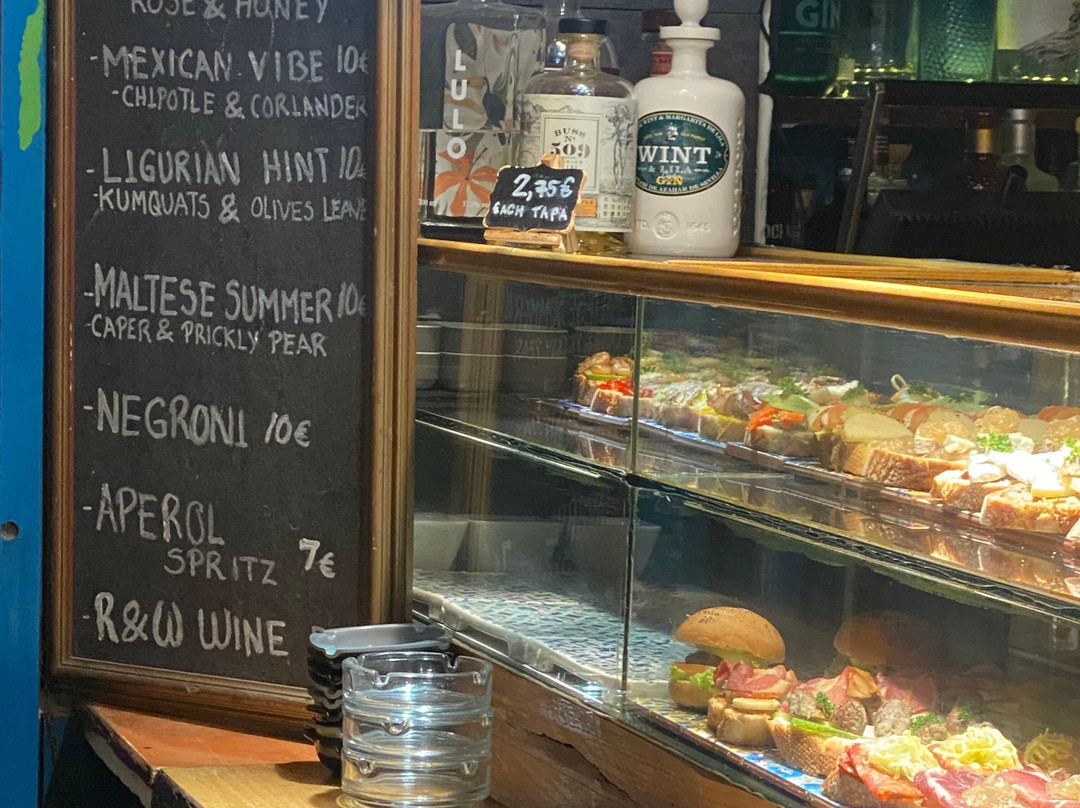 ROSE & HONEY
-MEXICAN VIBE 10€
-CHIPOTLE & CORIANDER
-LIGURIAN HINT 10€
-KUMQUATS & OLIVES LEAVE
-MALTESE SUMMER 10€
-CAPER & PRICKLY PEAR
-NEGRONI 10€
-APEROL
SPRITZ 7€
-R&W WINE
LULO
BUSS
Nº
509
2,75€
EACH TAPA
WINT & MARGARITA DE LILA
WINT
& LILA
GIN
DE AZAHAR DE SEVILLA
GIN